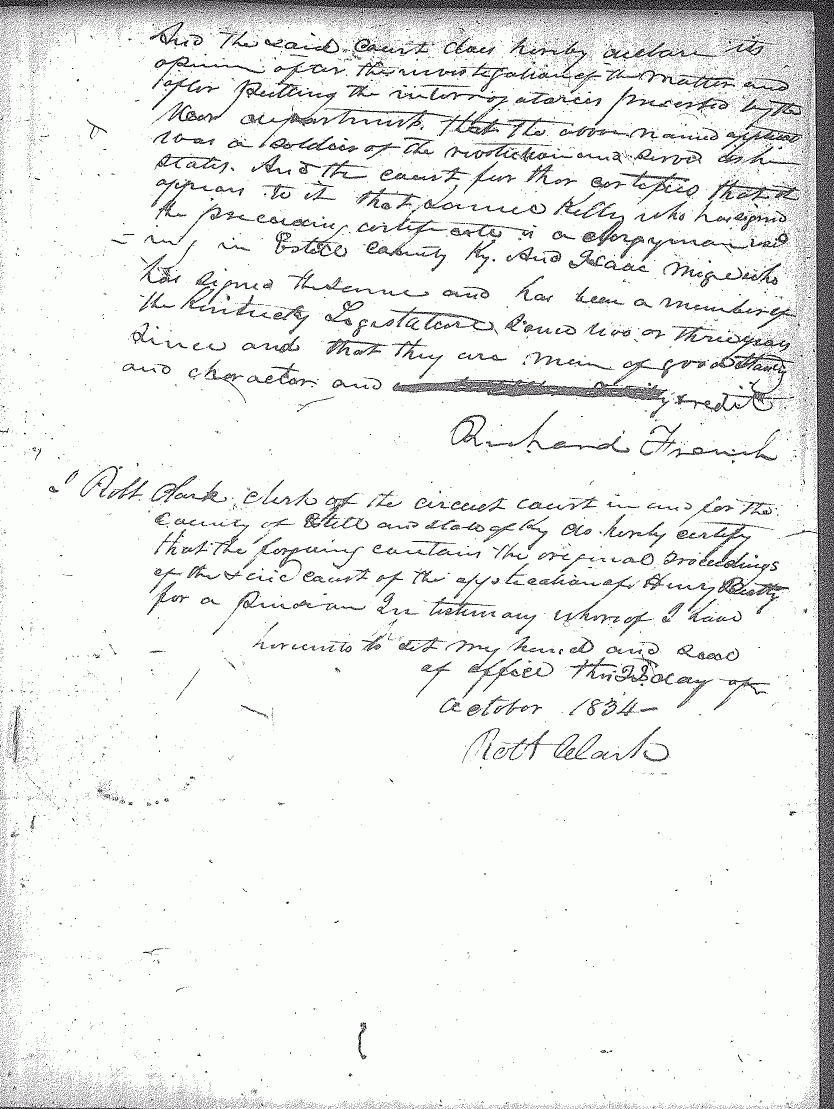 And the said court does hereby declare its
opinion after the investigation of the matter and
after putting the interrogatories prescribed by the
War department, that the above named applicant
was a soldier of the revolution and served as he
states. And the court further certifies that it
appears to it that James Kelly who has signed
the preceeding certificate is a clergyman resid
= ing in Estill County Ky. And Isaac who
has signed the same and has been a member of
the Kentucky Legislature some two or three years
since and that they are men of good standing
and character and credit
Richard French
I Robt Clark clerk of the circuit court in and for the
County of Estill and state of Ky do hereby certify
that the forgoing contains the original proceedings
of the said court of the application of Henry Beatty
for a pension In testimony whereof I have
hereunto set my hand and seal
of office this 23d day of
October 1834
Robt Clark